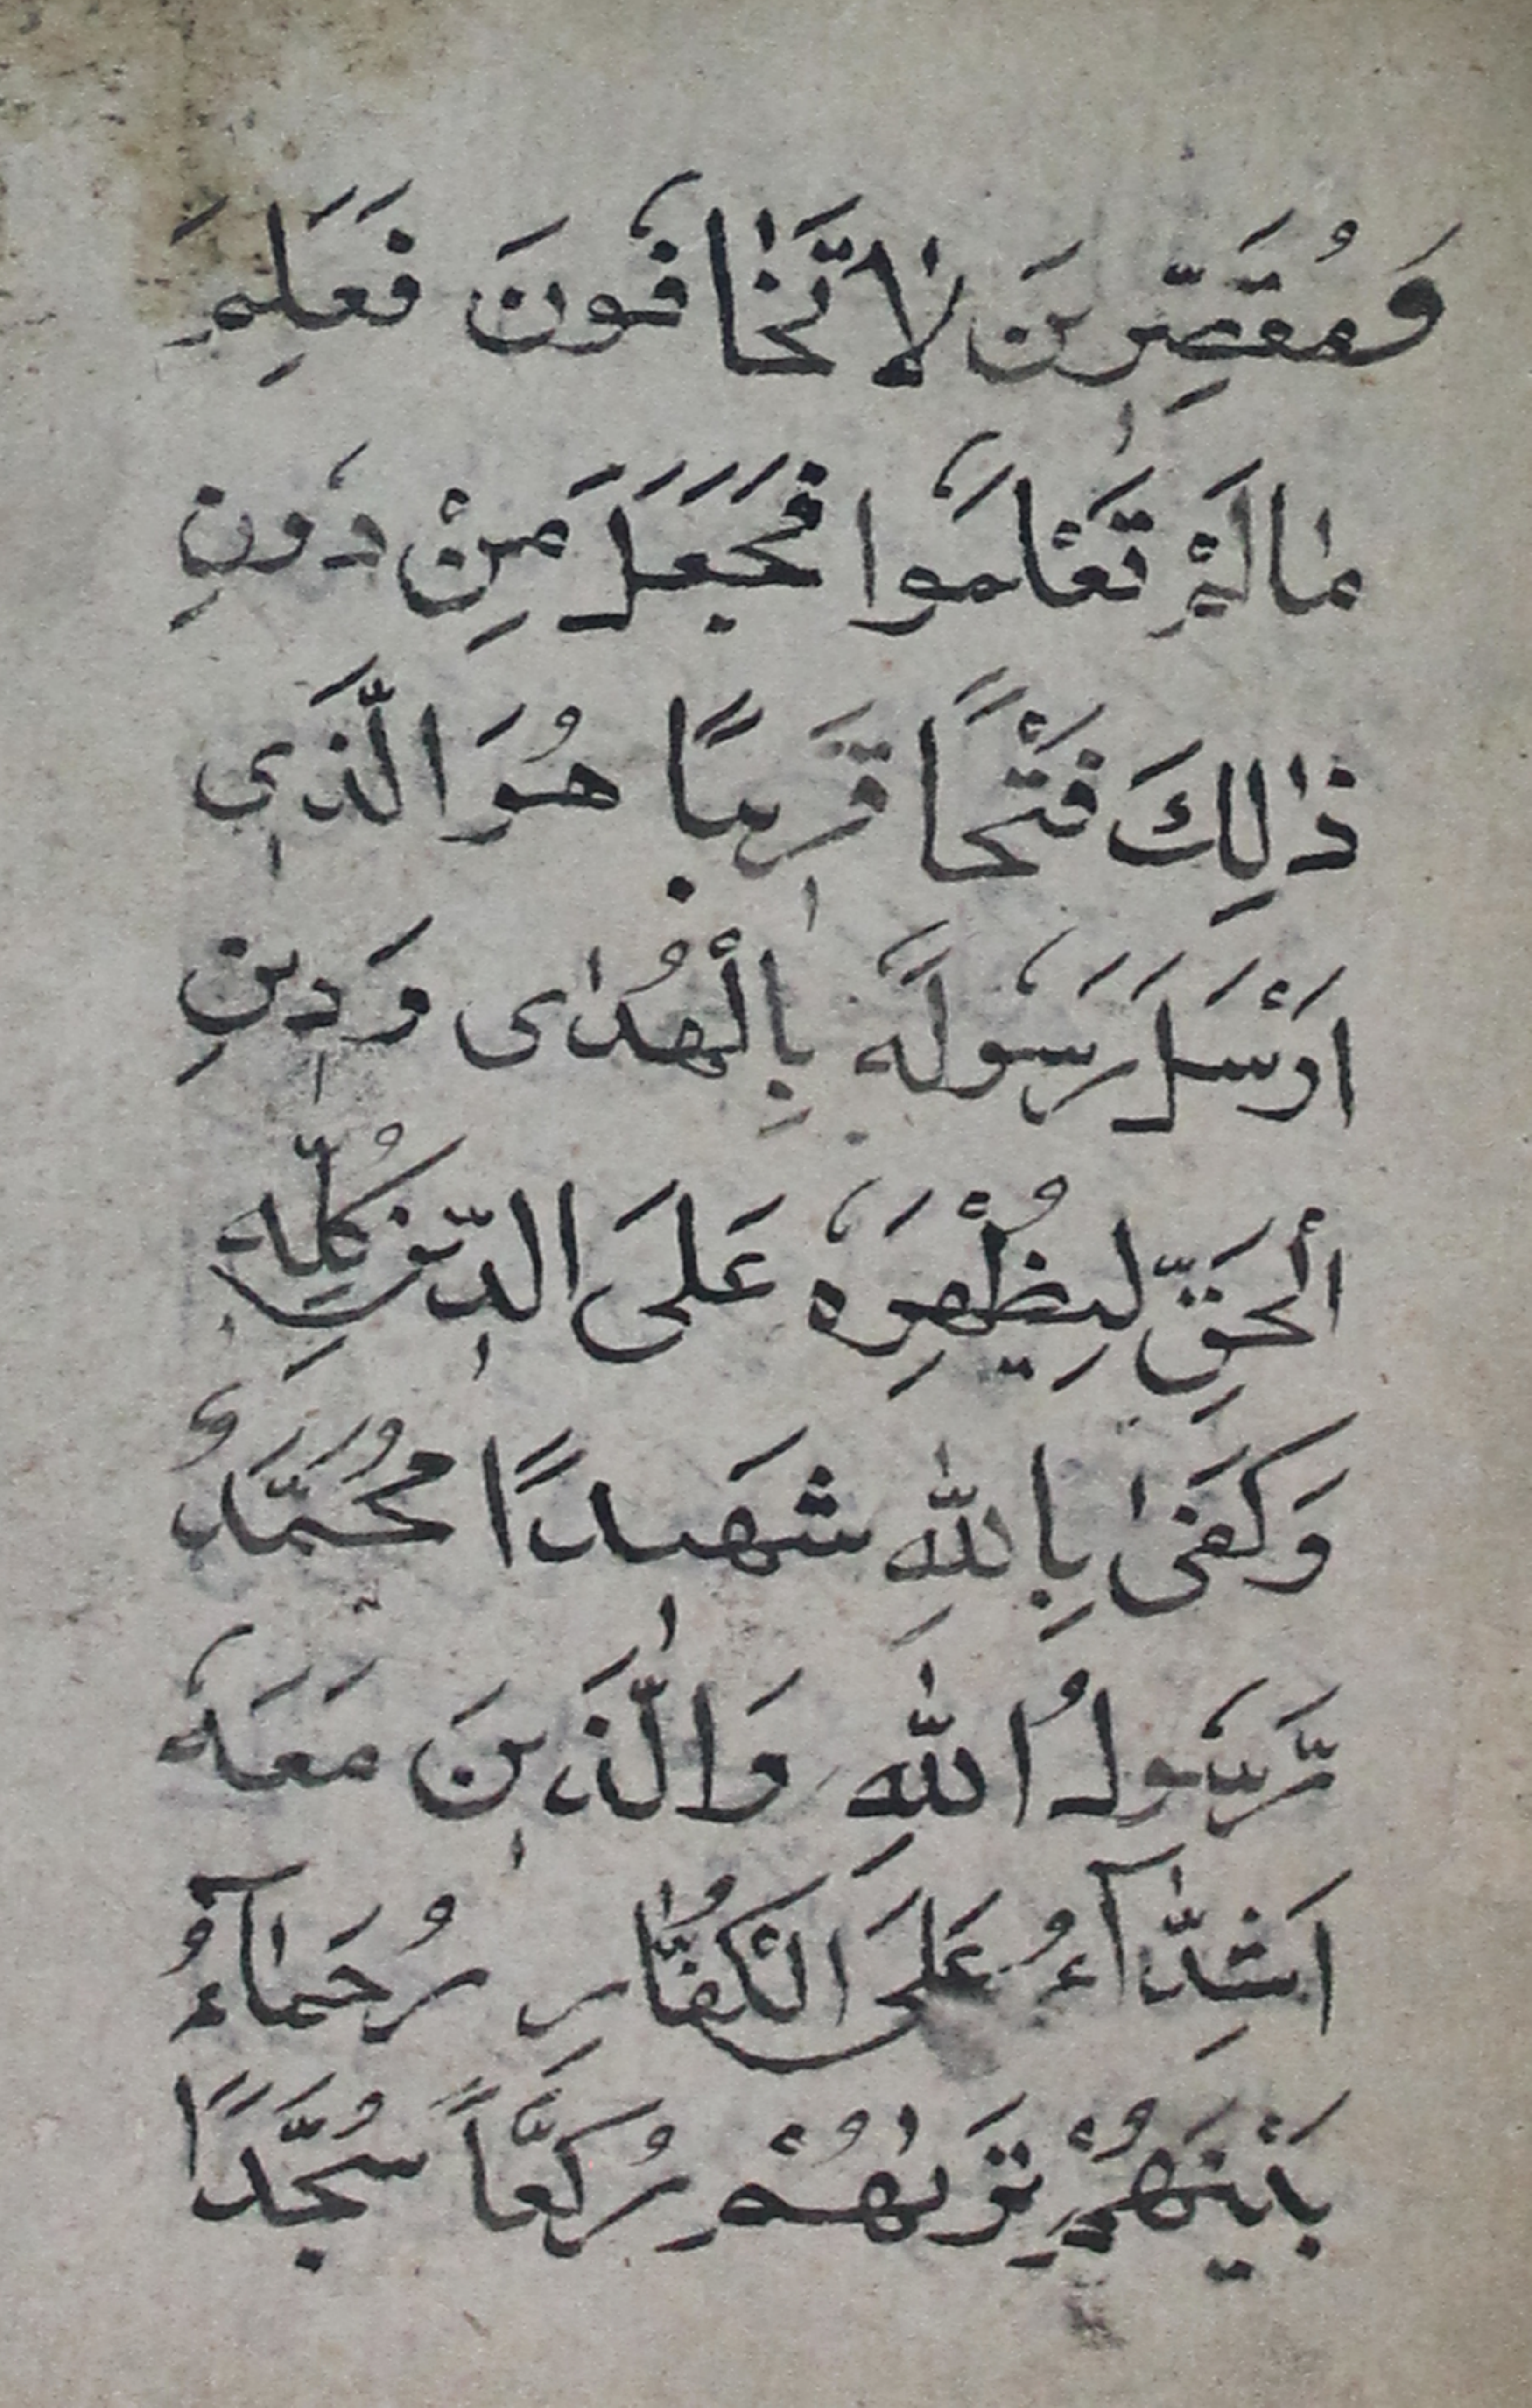 وَمُقَصِّرٖينَ لَا تَخٰافُونَ فَعَلِمَ
مٰا لَمْ تَعْلَمُوا فَجَعَلَ مِنْ دُونِ
ذٰلِكَ فَتْحًا قَرٖيبًا هُوَ الَّذٖى
اَرْسَلَ رَسُولَهُ بِالْهُدٰى وَدٖينِ
الْحَقِّ لِيُظْهِرَهُ عَلَى الدّٖينِ كُلِّهٖ
وَكَفٰى بِاللّٰهِ شَهٖيدًا مُحَمَّدٌ
رَّسُولُ اللّٰهِ وَالَّذٖينَ مَعَهُ
اَشِدّٰآءُ عَلَى الْكُفّٰارِ رُحَمٰآءُ
بَيْنَهُمْ تَرٰىهُمْ رُكَّعًا سُجَّدًا